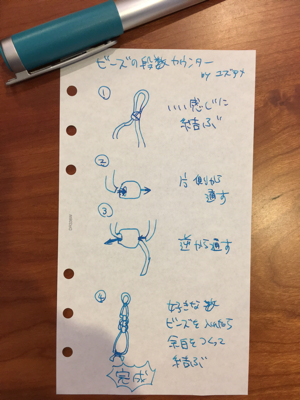 ビーズの段数カウンター
by ユズタナ
①
いい感じに
結ぶ
②
片側から
通す
③
逆から通す
④
好きな数
ビーズを入れたら
余白をつくって
結ぶ
完成